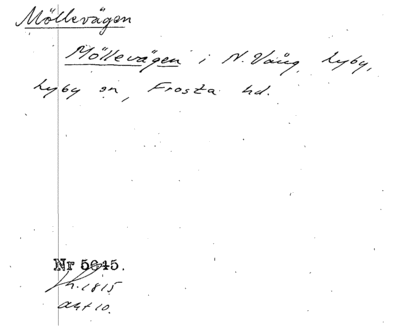 Möllevägen
Möllevägen i N. Vång, Lyby,
Lyby sn, Frosta hd.
Nr 5645.
h. 1815
akt 10.